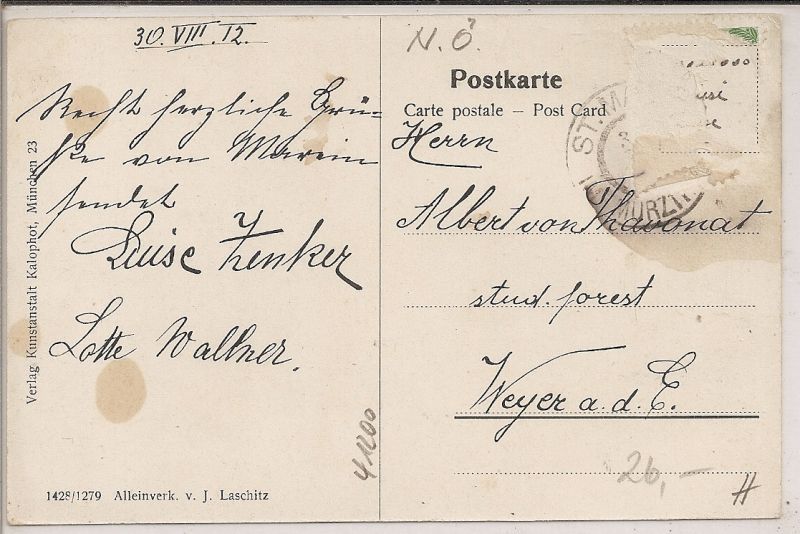 30.VIII.12.
Recht herzliche Grü-
ße von Marein
sendet
Luise Zenker
Lotte Wallner.
Verlag Kunstanstalt Kalophot, München 23
1428/1279 Alleinverk. v. J. Laschitz
41200
N.Ö.
Postkarte
Carte postale – Post Card
ST. MA
MÜRZT
Herrn
Albert von Thavonat
stud. forest
Weyer a. d. E.
26,–
H